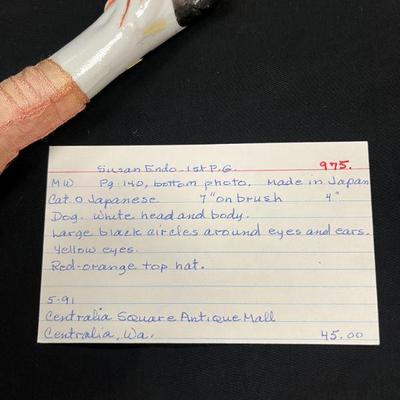 Susan Endo-1st P.G. 975.
MW Pg. 140, bottom photo. Made in Japan
Cat. O Japanese 7" on brush 4"
Dog. White head and body.
Large black circles around eyes and ears.
Yellow eyes.
Red-orange top hat.
5-91
Centralia Square Antique Mall
Centralia, Wa. 45.00